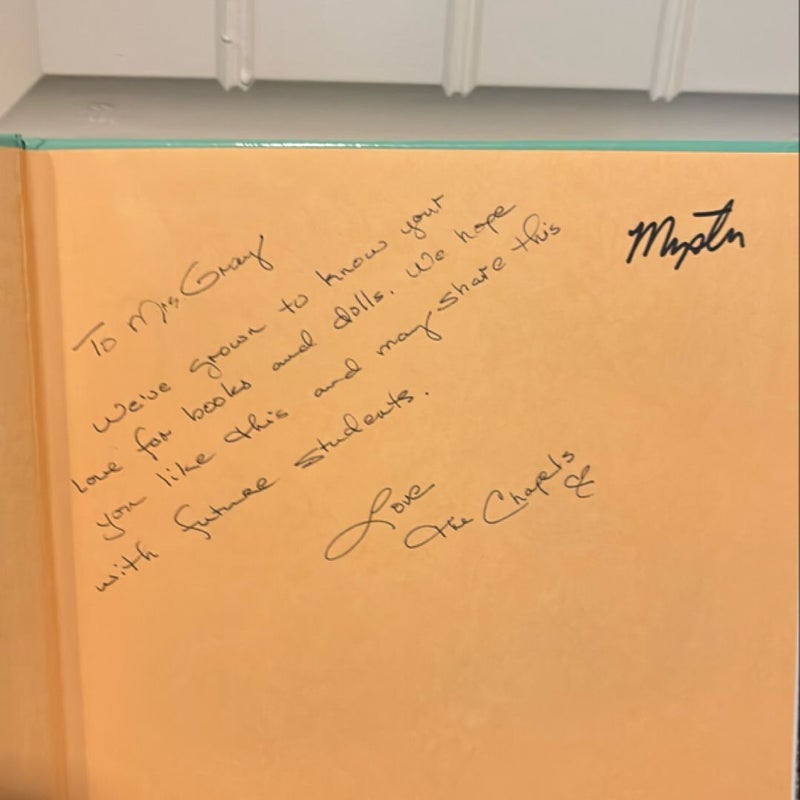 To Mrs Gray
We've grown to know your
love for books and dolls. We hope
you like this and may share this
with future students.
Love
the Chapels